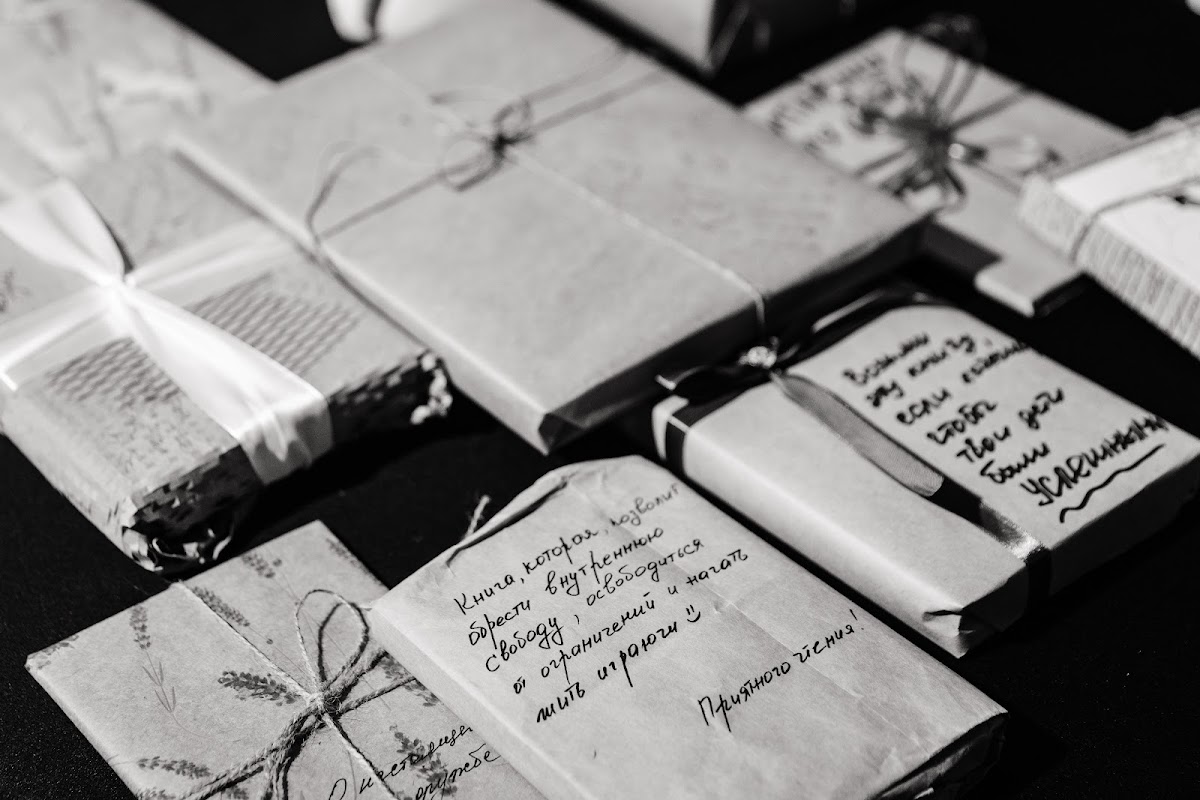 Возьми
эту книгу,
если хочешь,
чтобы
твои дети
были
успешными
Книга, которая, позволит
обрести внутреннюю
свободу, освободиться
от ограничений и начать
жить играючи
Приятного чтения!
О настоящей
дружбе